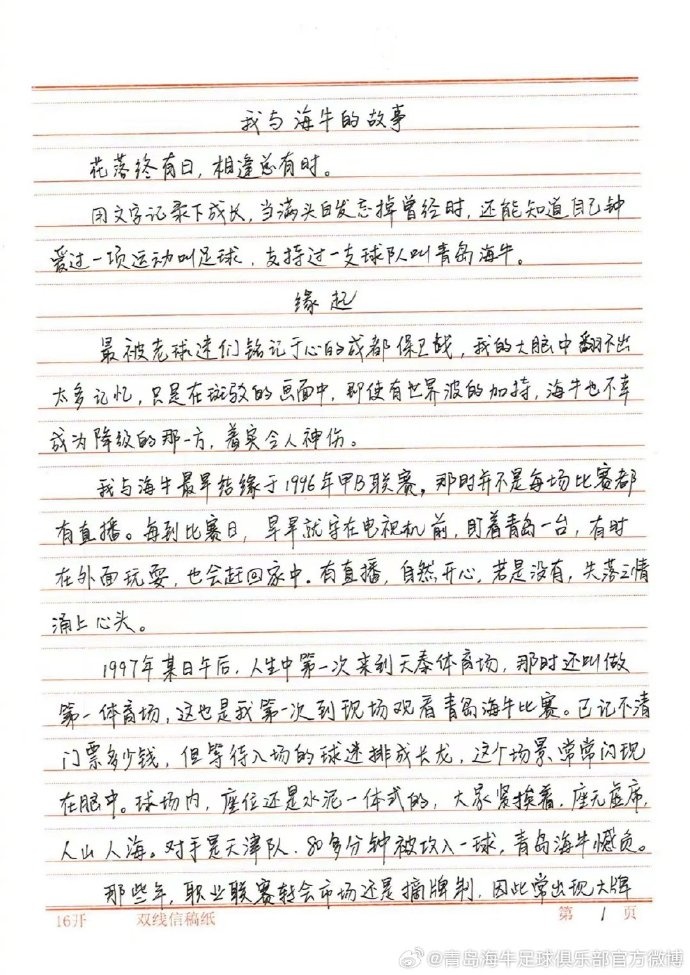 我与海牛的故事
花落终有日，相逢总有时。
用文字记录下成长，当满头白发忘掉曾经时，还能知道自己钟
爱过一项运动叫足球，支持过一支球队叫青岛海牛。
缘起
最被老球迷们铭记于心的成都保卫战，我的大脑中翻不出
太多记忆，只是在斑驳的画面中，即使有世界波的加持，海牛也不幸
成为降级的那一方，着实令人神伤。
我与海牛最早结缘于1996年甲B联赛，那时并不是每场比赛都
有直播。每到比赛日，早早就守在电视机前，盯着青岛一台，有时
在外面玩耍，也会赶回家中。有直播，自然开心，若是没有，失落之情
涌上心头。
1997年某日午后，人生中第一次来到天泰体育场，那时还叫做
第一体育场，这也是我第一次到现场观看青岛海牛比赛。已记不清
门票多少钱，但等待入场的球迷排成长龙，这个场景常常闪现
在眼中。球场内，座位还是水泥一体式的，大家紧挨着，座无虚席，
人山人海。对手是天津队，80多分钟被攻入一球，青岛海牛憾负。
那些年，职业联赛转会市场还是摘牌制，因此常出现大牌
16开 双线信稿纸 第 1 页
@青岛海牛足球俱乐部官方微博